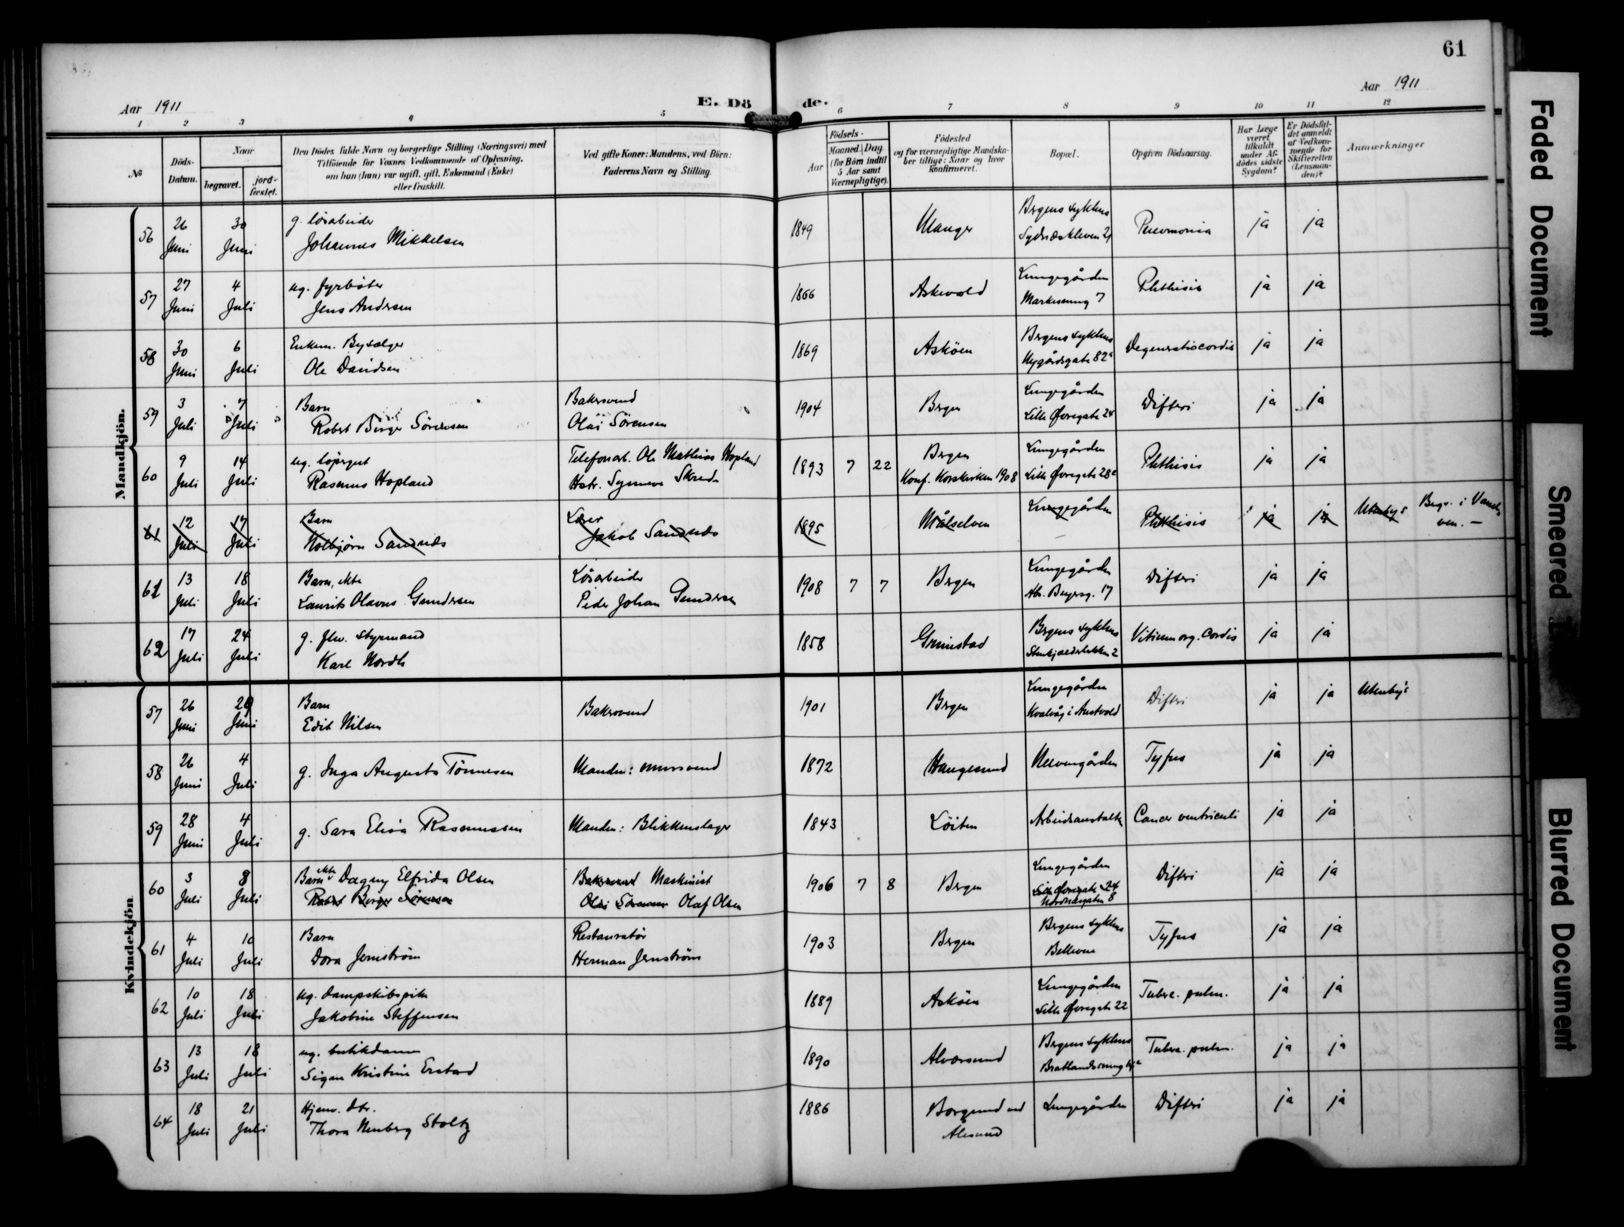 61
Aar 1911
E. Dö
de.
Aar 1911
1 2 3 4 5 6 7 8 9 10 11 12
No
Döds-
Datum.
Naar
begravet.
jord-
fæstet.
Den Dödes fulde Navn og borgerlige Stilling (Næringsvei) med
Tilföiende for Voxnes Vedkommende af Oplysning,
om han (hun) var ugift, gift, Enkemand (Enke)
eller fraskilt.
Ved gifte Koner: Mandens, ved Börn:
Faderens Navn og Stilling.
Födsels-
Aar
Maaned. Dag
(for Börn indtil
5 Aar samt
Værnepligtige).
Födested
og for værnepligtige Mandska-
ber tillige: Naar og hvor
konfirmeret.
Bopæl.
Opgiven Dödsaarsag.
Har Læge
været
tilkaldt
under Af-
dödes sidste
Sygdom?
Er Dödsfal-
det anmeldt
af Vedkom-
mende for
Skifteretten
(Lensman-
den)?
Anmærkninger
Mandkjön.
56 26 Juni 30 Juni
g. løsarbeider
Johannes Mikkelsen
1849 Manger
Bergens sykehus
Pneumonia ja ja
57 27 Juni 4 Juli
ug. fyrbøter
Jens Andersen
1866 Askevold
Lungegården
Markevei 7
Phthisis ja ja
58 30 Juni 6 Juli
Enkem. Bysælger
Ole Davidsen
1869 Askøen
Bergens sykehus
Nygårdsgate 82a
Degeneratio cordis ja ja
59 3 Juli 7 Juli
Barn
Robert Birger Sörensen
Bakersvend
Olai Sörensen
1904 Bergen
Lungegården
Lille Øvregate 24
Difteri ja ja
60 9 Juli 14 Juli
ug. løpegut
Rasmus Hopland
Telefonarb. Ole Mathias Hopland
Hstr. Synneve Skrede
1893 7 22 Bergen
Konf. Korskirken 1908
Lungegården
Lille Øvregate 28a
Phthisis ja ja
61 12 Juli 17 Juli
Barn
Kolbjørn Sandnes
Lærer
Jakob Sandnes
1895 Målselven
Lungegården
Phthisis ja ja
Utenbys Begr. i
61 13 Juli 18 Juli
Barn, ekte
Laurits Olavus Gundersen
Løsarbeider
Peder Johan Gundersen
1908 7 7 Bergen
Lungegården
Difteri ja ja
62 17 Juli 24 Juli
g. fhv. styrmand
Karl Nordli
1858 Grimstad
Bergens sykehus
Vitium org. cordis ja ja
Kvindekjön
57 26 Juni 29 Juni
Barn
Edit Nilsen
Bakersvend
1901 Bergen
Lungegården
Kvalvåg i Austvold
Difteri ja ja Utenbys
58 26 Juni 4 Juli
g. Inga Augusta Tönnesen
Manden: murersvend
1872 Haugesund Neevengården
Tyfus ja ja
59 28 Juni 4 Juli
g. Sara Elisa Rasmussen
Manden: Blikkenslager
1843 Løiten Arbeidsanstalten
Cancer ventriculi ja ja
60 3 Juli 8 Juli
Barn ekte Dagny Elfrida Olsen
Robert Birger Sörensen
Bakersvend Maskinist
Olai Sörensen Olaf Olsen
1906 7 8 Bergen
Lungegården
Lille Øvregate 24
Nordnæsgaten 8
Difteri ja ja
61 4 Juli 10 Juli
Barn
Dora Jernström
Restauratør
Herman Jernström
1903 Bergen
Bergens sykehus
Bellevue
Tyfus ja ja
62 10 Juli 18 Juli
ug. dampskibspike
Jakobine Steffensen
1889 Askøen
Lungegården
Lille Øvregate 22
Tuberc. pulm. ja ja
63 13 Juli 18 Juli
ug. butikdame
Signe Kristine Erstad
1890 Alversund
Bergens sykehus
Tuberc. pulm. ja ja
64 18 Juli 21 Juli
Hjemv. dtr.
Thora Nenberg Stoltz
1886 Borgund ved
Alesund
Lungegården
Difteri ja ja
Faded Document
Smeared
Blurred Document